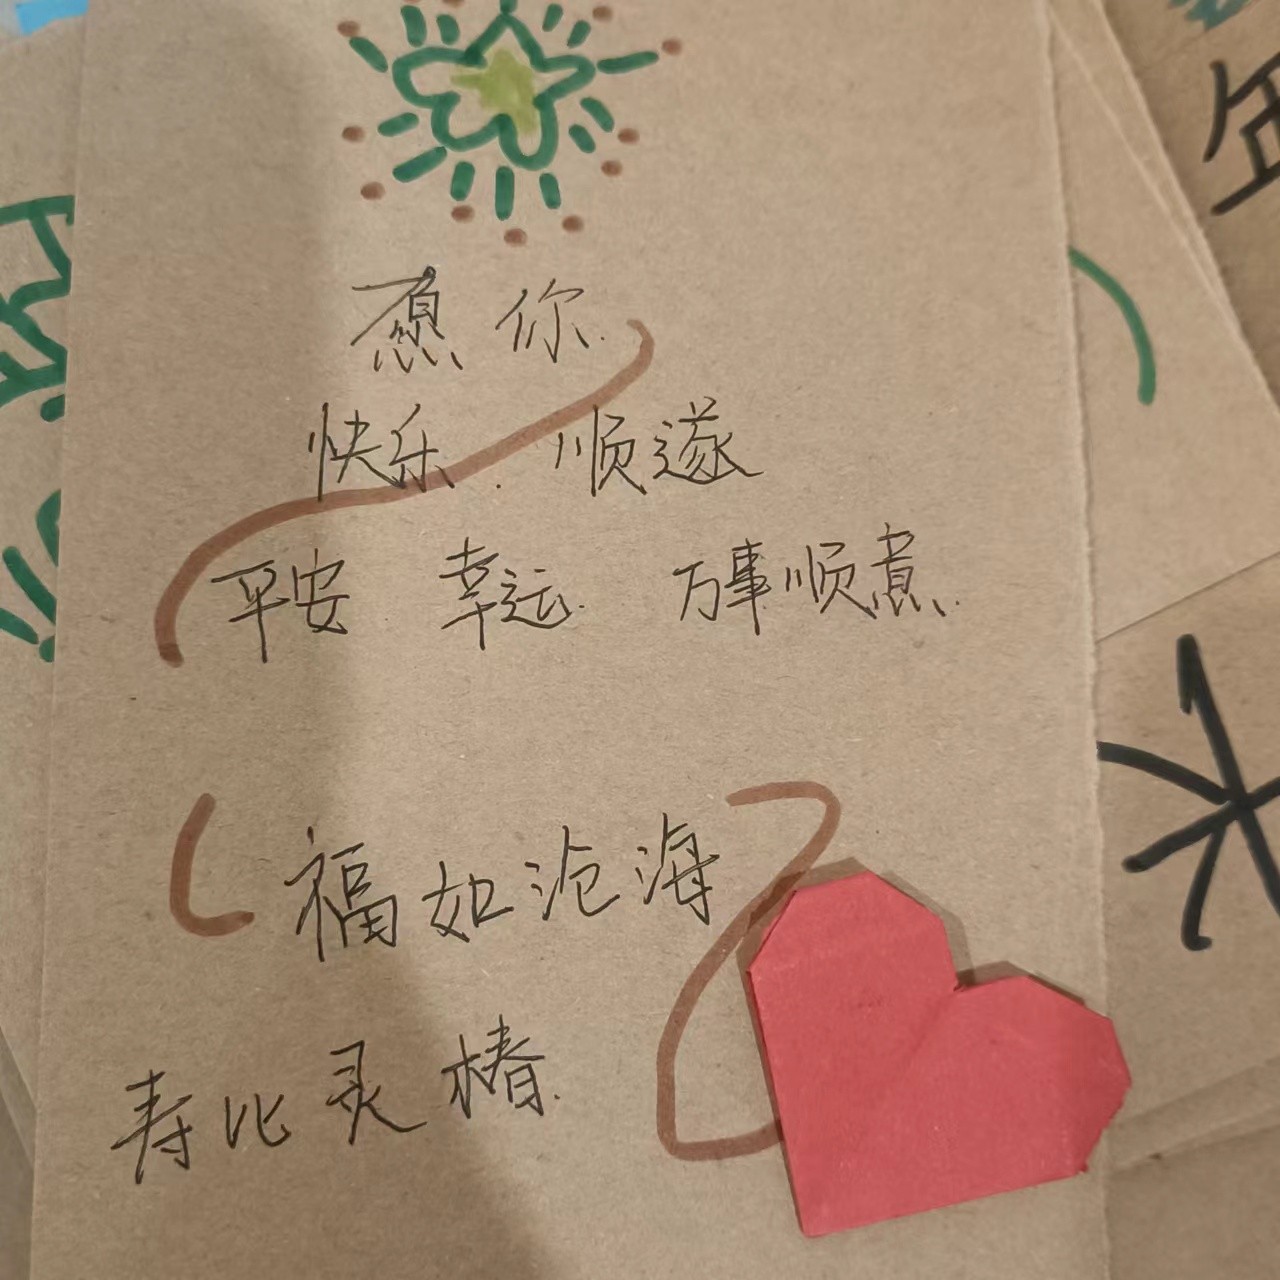 愿你
快乐. 顺遂
平安 幸运. 万事顺意.
福如沧海
寿比灵椿.
年